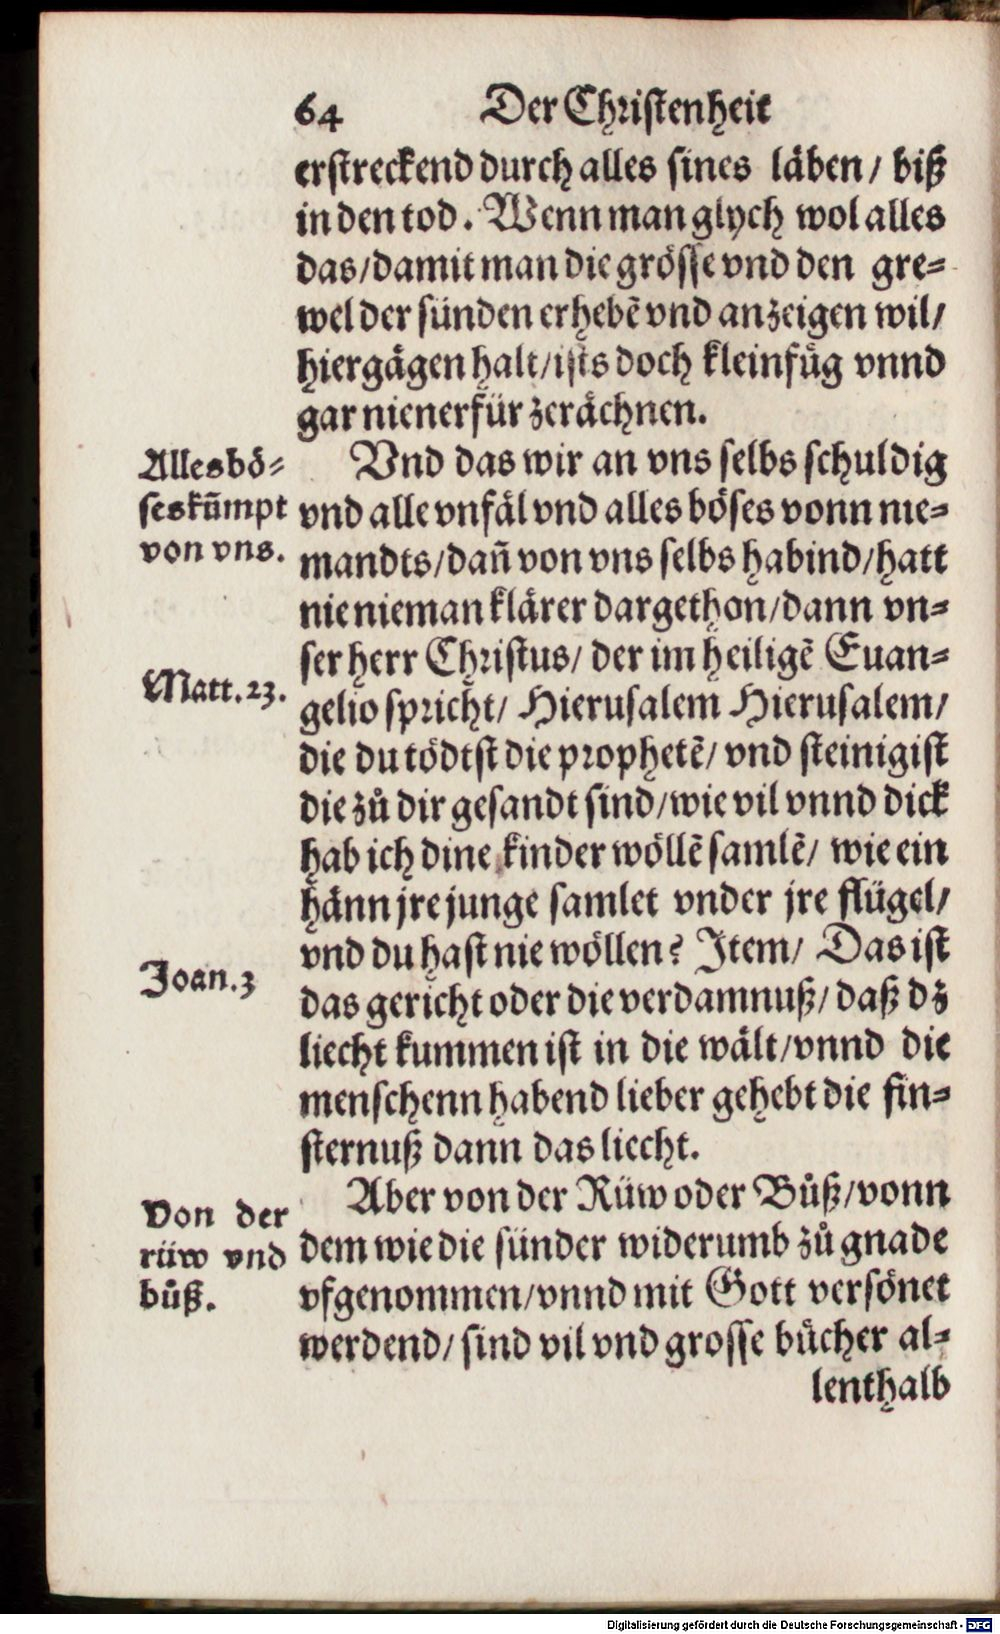 64 Der Christenheit
erstreckend durch alles sines läben/ biß
in den tod. Wenn man glych wol alles
das/damit man die grösse vnd den gre⸗
wel der sünden erhebẽ vnd anzeigen wil/
hiergägen halt/ists doch kleinfüg vnnd
gar nienerfür zerächnen.
Alles bö⸗
ses kũmpt
von vns.
Vnd das wir an vns selbs schuldig
vnd alle vnfäl vnd alles böses vonn nie⸗
mandts/dañ von vns selbs habind/hatt
nie nieman klärer dargethon/dann vn⸗
ser herr Christus/ der im heiligẽ Euan⸗
Matt. 23.
gelio spricht/ Hierusalem Hierusalem/
die du tödtst die prophetẽ/ vnd steinigist
die zů dir gesandt sind/wie vil vnnd dick
hab ich dine kinder wöllẽ samlẽ/ wie ein
hänn jre junge samlet vnder jre flügel/
vnd du hast nie wöllen? Item/ Das ist
Joan. 3
das gericht oder die verdamnuß/daß dz
liecht kummen ist in die wält/vnnd die
menschenn habend lieber gehebt die fin⸗
sternuß dann das liecht.
Von der
rüw vnd
bůß.
Aber von der Rüw oder Bůß/vonn
dem wie die sünder widerumb zů gnade
vfgenommen/vnnd mit Gott versönet
werdend/ sind vil vnd grosse bücher al⸗
lenthalb
Digitalisierung gefördert durch die Deutsche Forschungsgemeinschaft - DFG